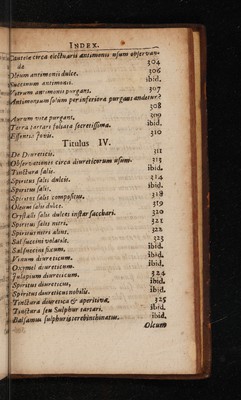 INDEX.
Cautelæ circa electuarii antimonii usum observan-
dæ 304
Oleum antimonii dulce. 306
Succinum antimonii. ibid.
Vitrum antimonii purgans. 307
Antimonium solum per inferiora purgans andetur?
308
Aurum vitæ purgans. 309
Terra tartari foliata secretissima. ibid.
Essentia Jovis. 310
Titulus IV.
De Diureticis. 311
Observationes circa diureticorum usum. 313
Tinctura salis. ibid.
Spiritus salis dulcis. 314
Spiritus salis. ibid.
Spiritus salis compositus. 318
Oleum salis dulce. 319
Crystalli salis dulces instar sacchari. 320
Spiritus salis nitri. 321
Spiritus nitri alius. 322
Sal succini volatile. 323
Sal succini fixum. ibid.
Vinum diureticum. ibid.
Oxymel diureticum. ibid.
Julapium diureticum. 324
Spiritus diureticus. ibid.
Spiritus diureticus nobilis. ibid.
Tinctura diuretica & aperitiva. 325
Tinctura seu Sulphur tartari. ibid.
Balsamus sulphuris terebinthinatus. ibid.
Oleum